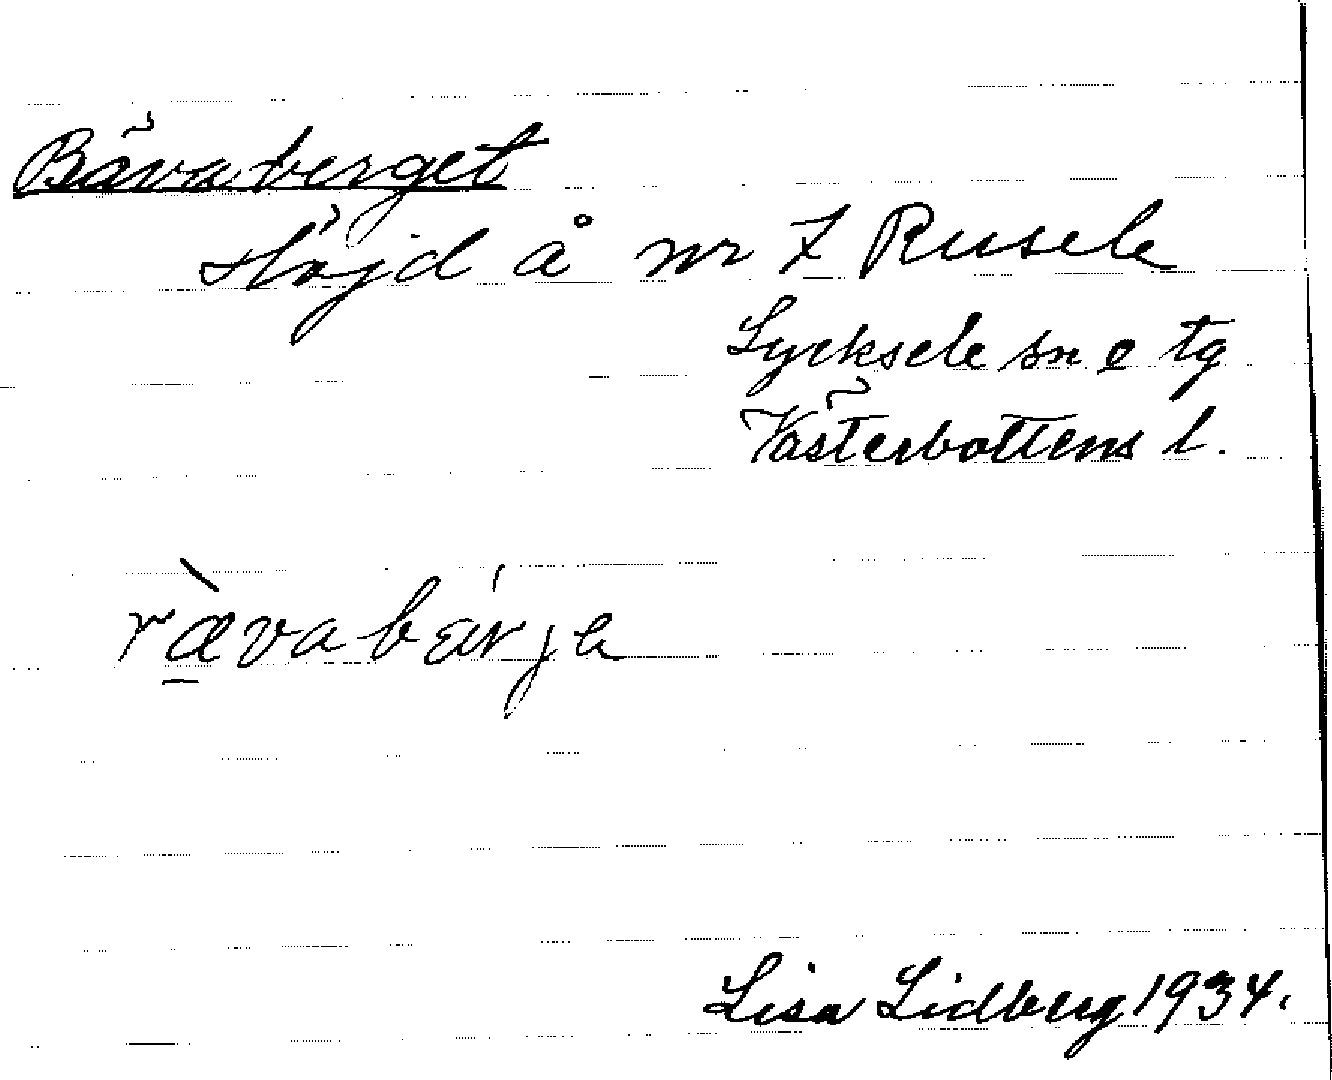 Rävaberget
Höjd å nr 7 Rusele
Lycksele sn o tg
Västerbottens l.
ræ̱̀vabæŕje
Lisa Lidberg 1934.